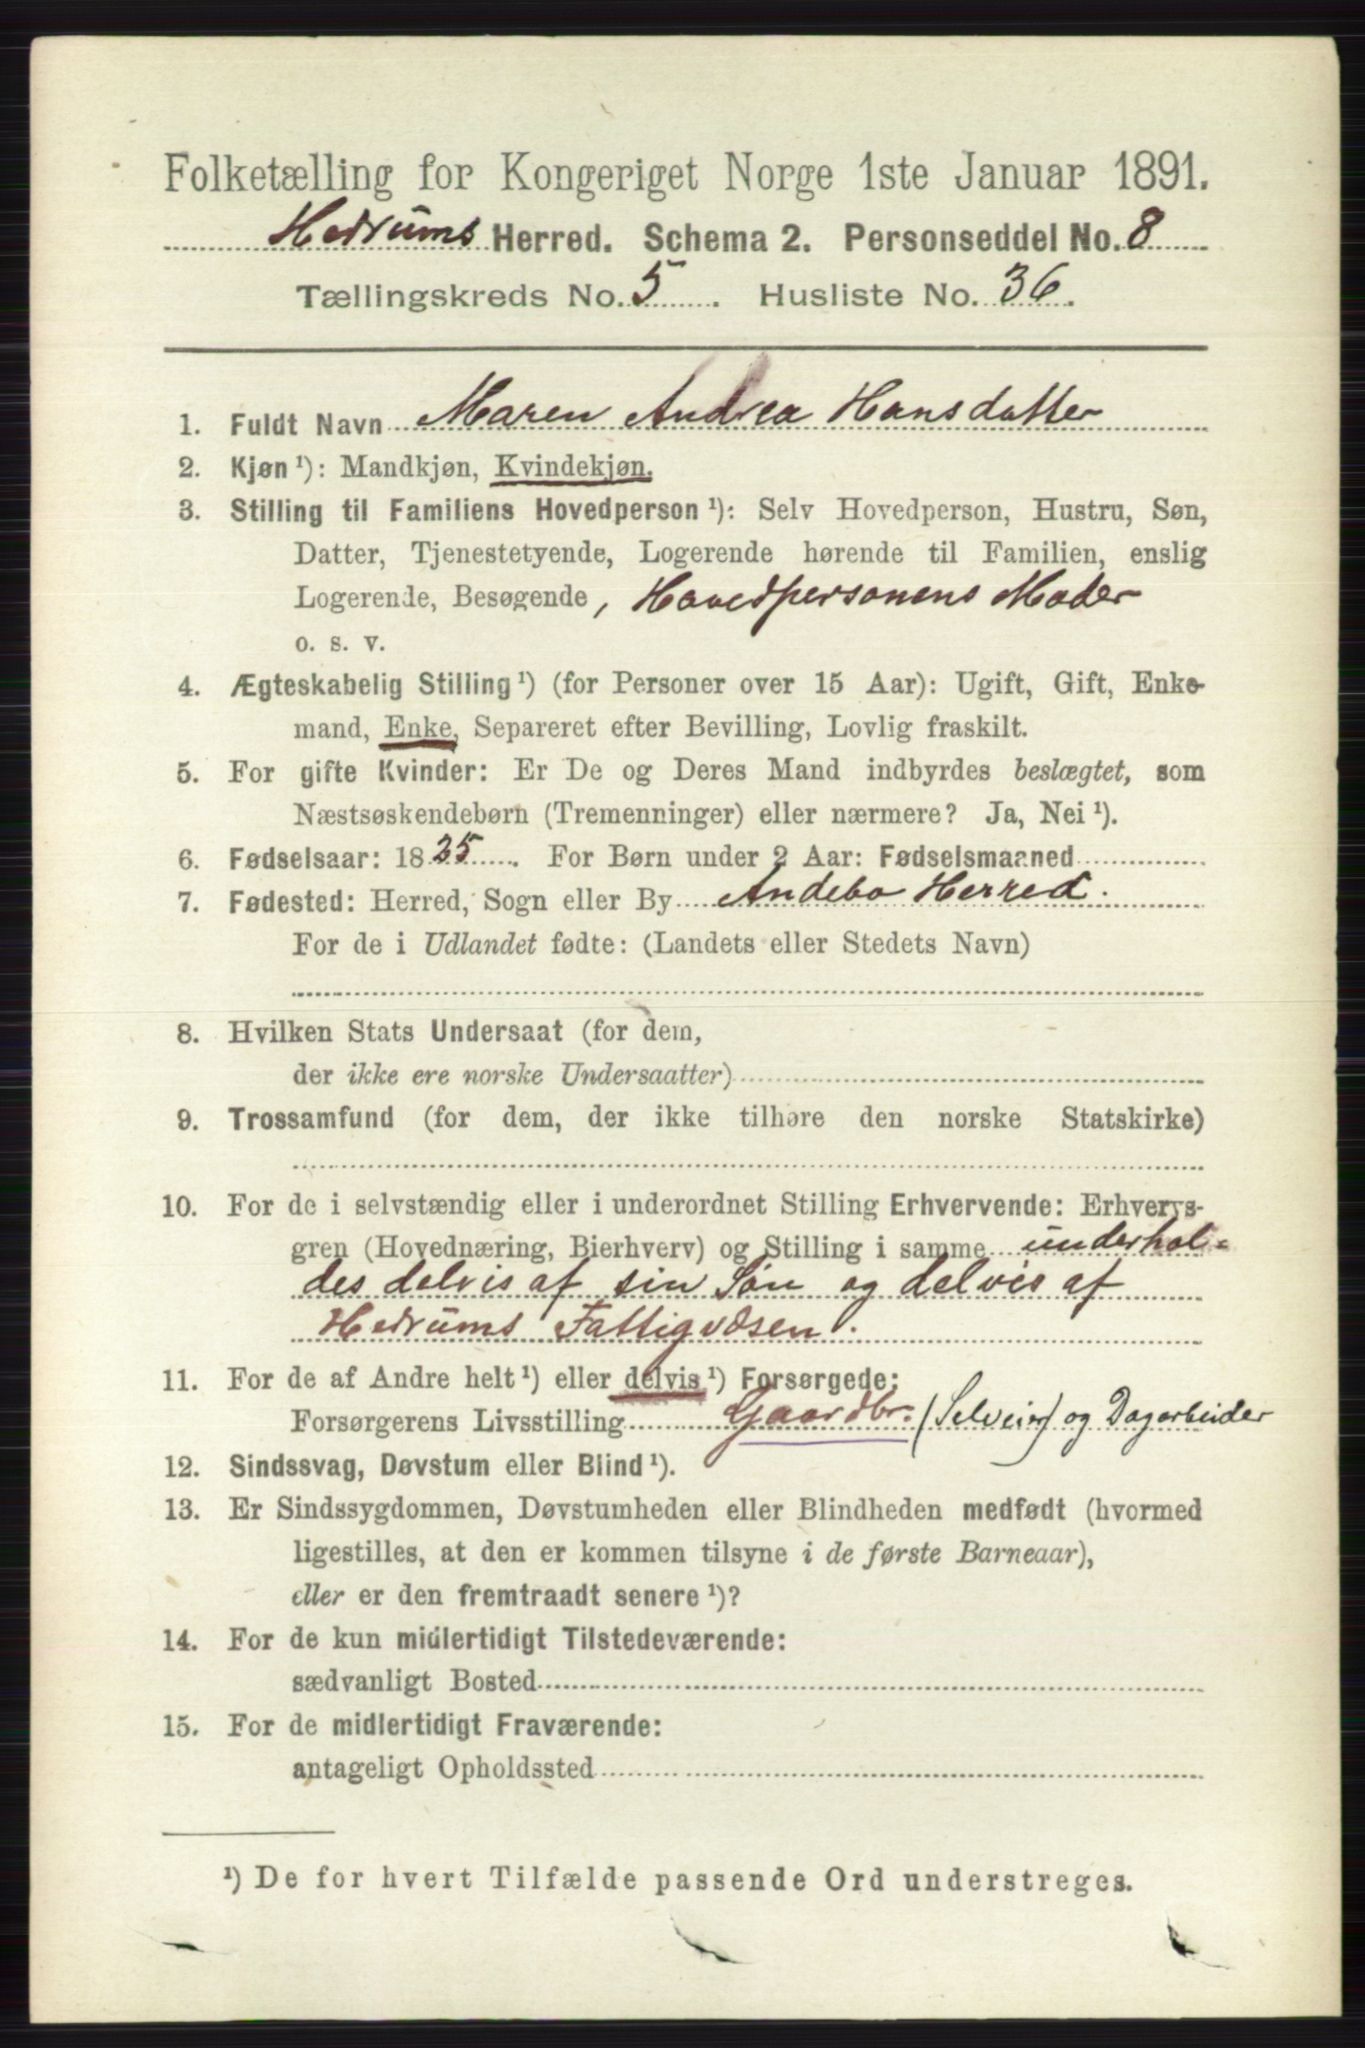 Folketælling for Kongeriget Norge 1ste Januar 1891.
Hedrums Herred. Schema 2. Personseddel No. 8
Tællingskreds No. 5. Husliste No. 36.
1. Fuldt Navn Maren Andrea Hansdatter
2. Kjøn ¹): Mandkjøn, Kvindekjøn.
3. Stilling til Familiens Hovedperson ¹): Selv Hovedperson, Hustru, Søn,
Datter, Tjenestetyende, Logerende hørende til Familien, enslig
Logerende, Besøgende, Hovedpersonens Moder
o. s. v.
4. Ægteskabelig Stilling ¹) (for Personer over 15 Aar): Ugift, Gift, Enke-
mand, Enke, Separeret efter Bevilling, Lovlig fraskilt.
5. For gifte Kvinder: Er De og Deres Mand indbyrdes beslægtet, som
Næstsøskendebørn (Tremenninger) eller nærmere? Ja, Nei ¹).
6. Fødselsaar: 1825. For Børn under 2 Aar: Fødselsmaaned
7. Fødested: Herred, Sogn eller By Andebo Herred.
For de i Udlandet fødte: (Landets eller Stedets Navn)
8. Hvilken Stats Undersaat (for dem,
der ikke ere norske Undersaatter)
9. Trossamfund (for dem, der ikke tilhøre den norske Statskirke)
10. For de i selvstændig eller i underordnet Stilling Erhvervende: Erhvervs-
gren (Hovednæring, Bierhverv) og Stilling i samme underhol-
des delvis af sin Søn og delvis af
Hedrums Fattigvæsen.
11. For de af Andre helt ¹) eller delvis ¹) Forsørgede:
Forsørgerens Livsstilling Gaardbr. (Selveier) og Dagarbeider
12. Sindssvag, Døvstum eller Blind ¹).
13. Er Sindssygdommen, Døvstumheden eller Blindheden medfødt (hvormed
ligestilles, at den er kommen tilsyne i de første Barneaar),
eller er den fremtraadt senere ¹)?
14. For de kun midlertidigt Tilstedeværende:
sædvanligt Bosted
15. For de midlertidigt Fraværende:
antageligt Opholdssted
¹) De for hvert Tilfælde passende Ord understreges.